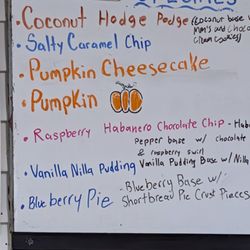 • Coconut Hodge Podge
(coconut base
M&M's and
cream cookies)
• Salty Caramel Chip
• Pumpkin Cheesecake
• Pumpkin
• Raspberry Habanero Chocolate Chip -
pepper base w/ chocolate
& raspberry swirl
• Vanilla Nilla Pudding Vanilla Pudding Base w/ Nilla
• Blueberry Pie - Blueberry Base w/
Shortbread Pie Crust Pieces